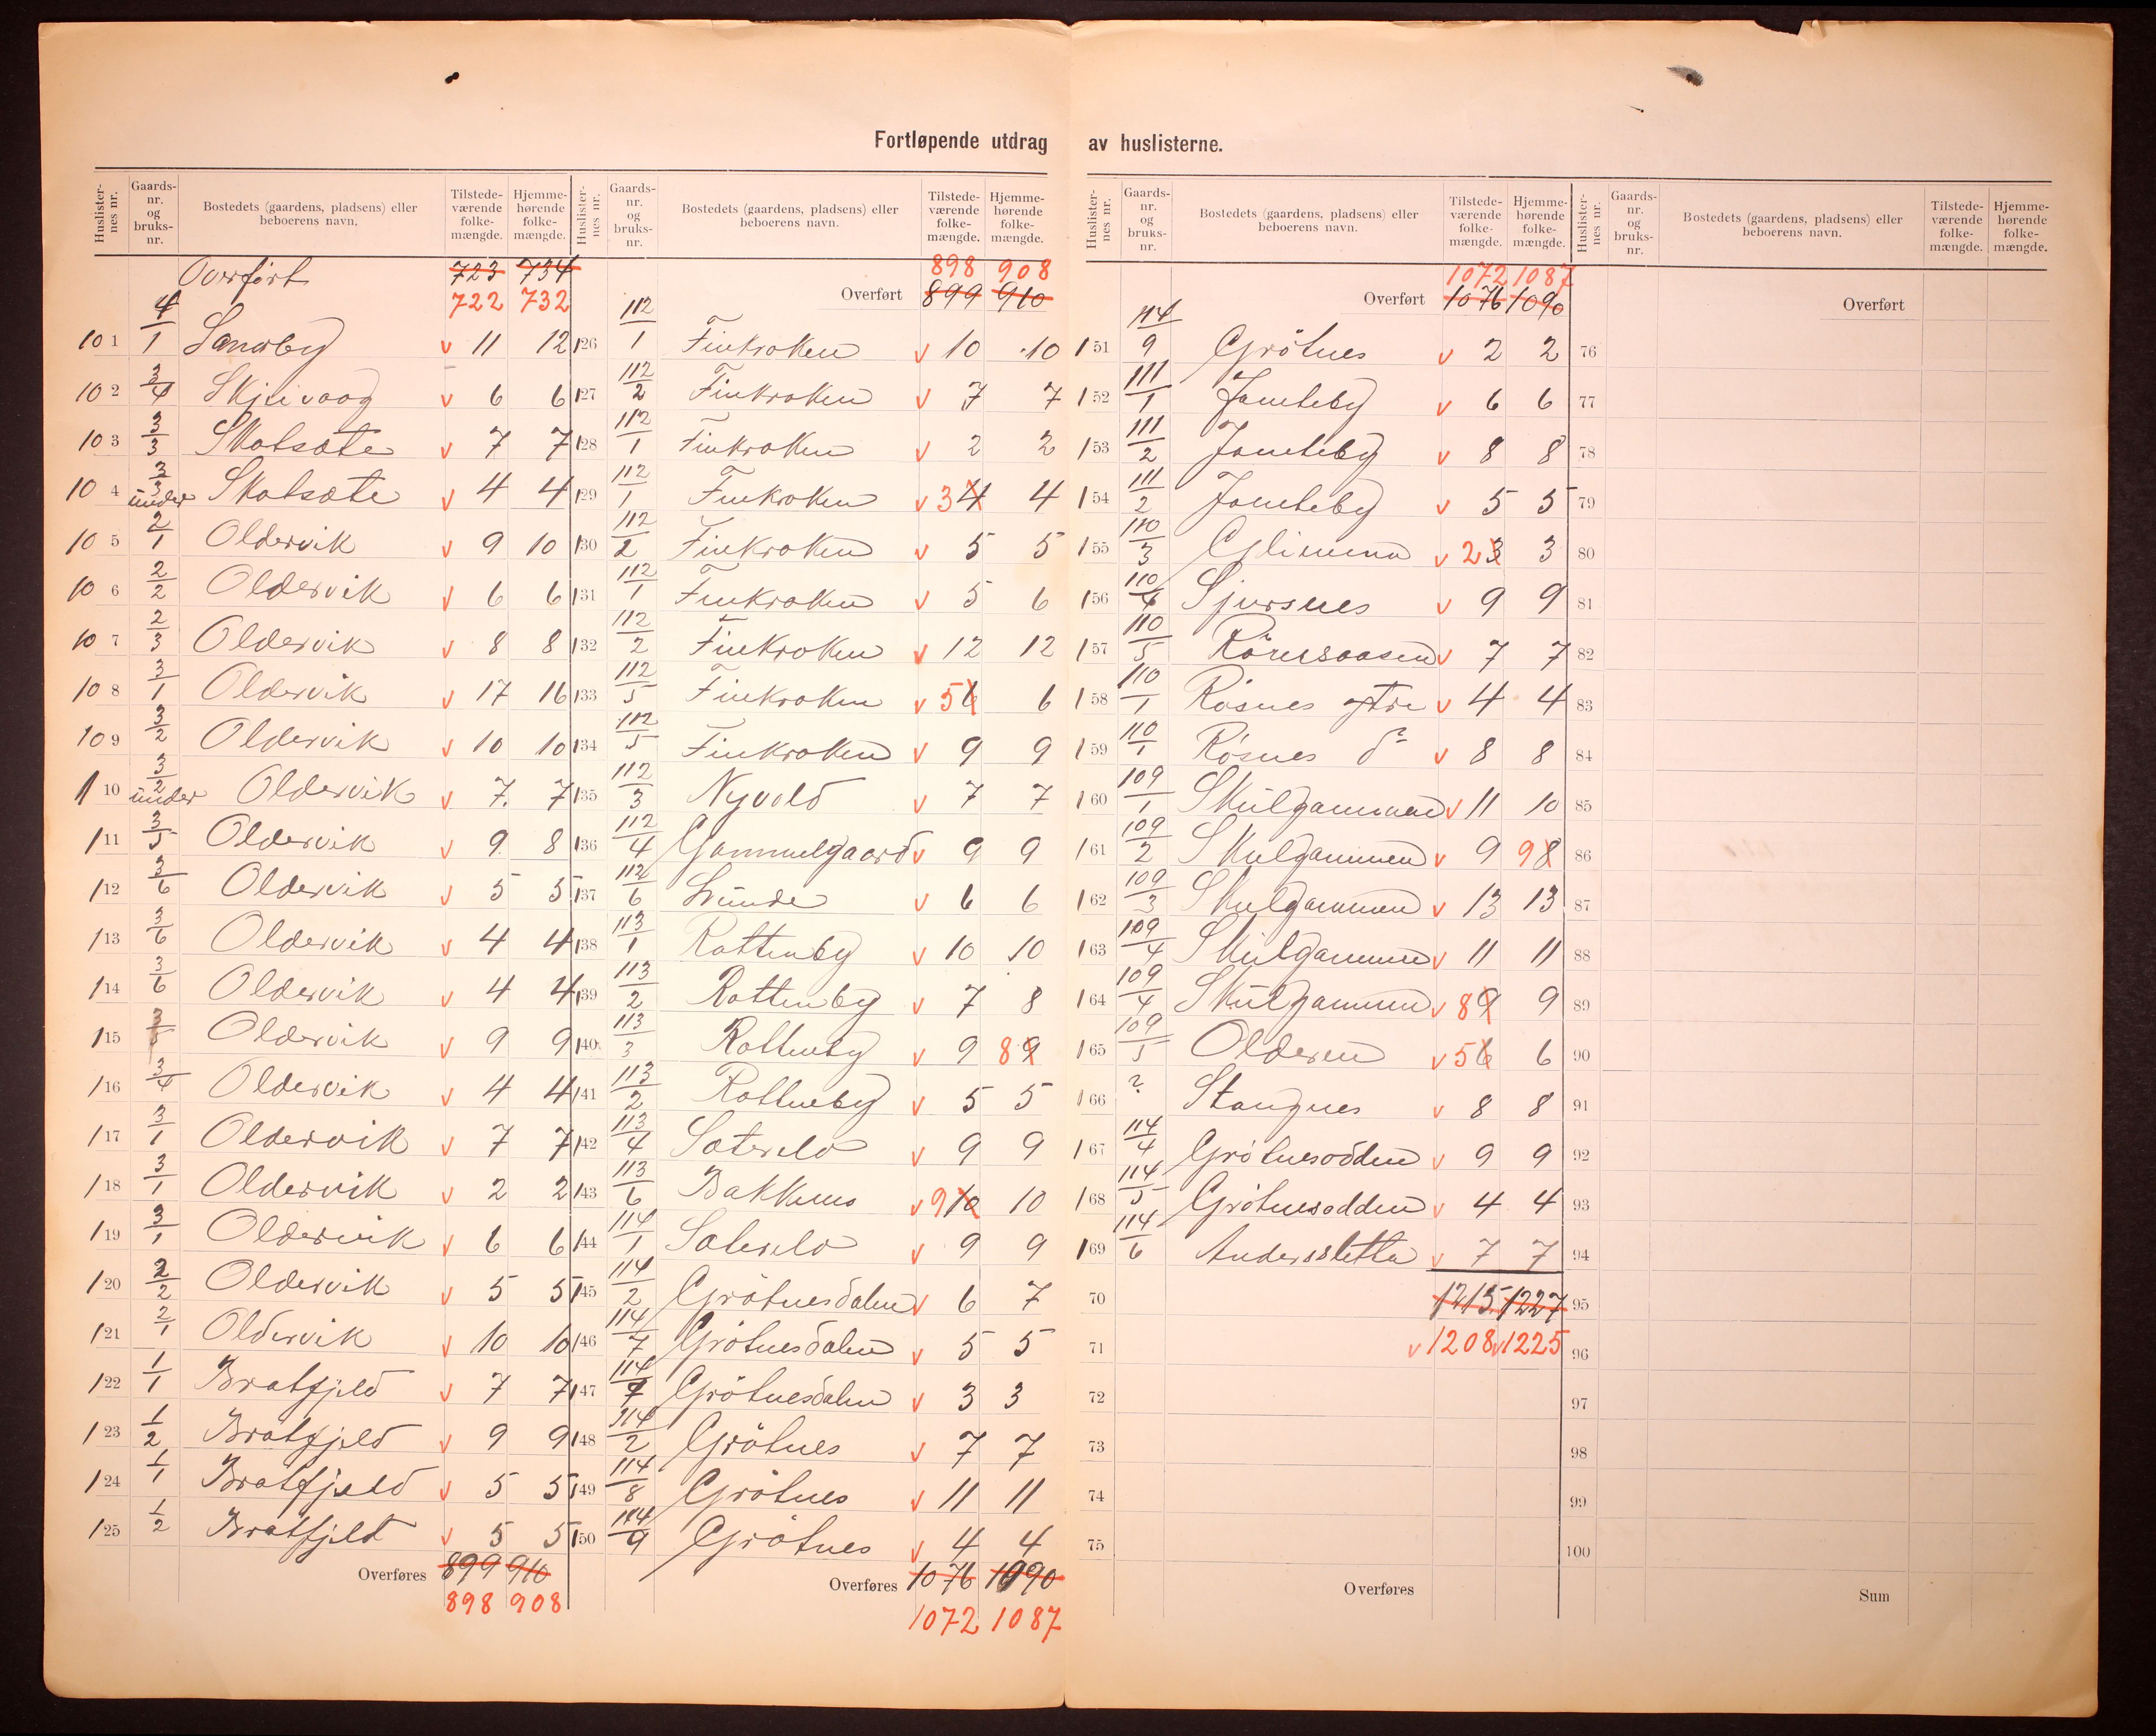 Fortløpende utdrag av huslisterne.
Huslisternes nr. Gaardsnr. og bruksnr. Bostedets (gaardens, pladsens) eller beboerens navn. Tilstedeværende folkemængde. Hjemmehørende folkemængde.
Overført 723 734
722 732
101 4/1 Sandby v 11 12
102 3/4 Skjelvaag v 6 6
103 3/3 Skatsæte v 7 7
104 3/3 under Skatsæte v 4 4
105 2/1 Oldervik v 9 10
106 2/2 Oldervik v 6 6
107 2/3 Oldervik v 8 8
108 3/1 Oldervik v 17 16
109 3/2 Oldervik v 10 10
110 3/2 under Oldervik v 7. 7
111 3/5 Oldervik v 9 8
112 3/6 Oldervik v 5 5
113 3/6 Oldervik v 4 4
114 3/6 Oldervik v 4 4
115 Oldervik v 9 9
116 3/4 Oldervik v 4 4
117 3/1 Oldervik v 7 7
118 3/1 Oldervik v 2 2
119 3/1 Oldervik v 6 6
120 2/2 Oldervik v 5 5
121 2/1 Oldervik v 10 10
122 1/1 Bratfjeld v 7 7
123 1/2 Bratfjeld v 9 9
124 1/1 Bratfjeld v 5 5
125 1/2 Bratfjeld v 5 5
Overføres 899 910
898 908
Huslisternes nr. Gaardsnr. og bruksnr. Bostedets (gaardens, pladsens) eller beboerens navn. Tilstedeværende folkemængde. Hjemmehørende folkemængde.
898 908
Overført 899 910
126 112/1 Finkroken v 10 10
127 112/2 Finkroken v 7 7
128 112/1 Finkroken v 2 2
129 112/1 Finkroken v 3 4 4
130 112/2 Finkroken v 5 5
131 112/1 Finkroken v 5 6
132 112/2 Finkroken v 12 12
133 112/5 Finkroken v 5 6 6
134 112/5 Finkroken v 9 9
135 112/3 Nyvold v 7 7
136 112/4 Gammelgaard v 9 9
137 112/6 Lünde v 6 6
138 113/1 Rottenby v 10 10
139 113/2 Rottenby v 7 8
140 113/3 Rottenby v 9 8 9
141 113/2 Rottenby v 5 5
142 113/4 Sæterelv v 9 9
143 113/6 Bakkemo v 9 10 10
144 114/1 Sæterelv v 9 9
145 114/2 Grötnesdalen v 6 7
146 114/7 Grötnesdalen v 5 5
147 114/7 Grötnesdalen v 3 3
148 114/2 Grötnes v 7 7
149 114/8 Grötnes v 11 11
150 114/9 Grötnes v 4 4
Overføres 1076 1090
1072 1087
Huslisternes nr. Gaardsnr. og bruksnr. Bostedets (gaardens, pladsens) eller beboerens navn. Tilstedeværende folkemængde. Hjemmehørende folkemængde.
1072 1087
Overført 1076 1090
151 114/9 Grötnes v 2 2
152 111/1 Jamteby v 6 6
153 111/2 Jamteby v 8 8
154 111/2 Jamteby v 5 5
155 110/3 Glimma v 2 3 3
156 110/4 Sjursnes v 9 9
157 110/5 v 7 7
158 110/1 Røsnes østre v 4 4
159 110/1 Røsnes do v 8 8
160 109/1 Skülgammen v 11 10
161 109/2 Skulgammen v 9 9 8
162 109/3 Skulgammen v 13 13
163 109/4 Skülgammen v 11 11
164 109/4 Skülgammen v 8 9 9
165 109/5 Olderen v 5 6 6
166 ? Stangnes v 8 8
167 114/4 Grötnesodden v 9 9
168 114/5 Grötnesodden v 4 4
169 114/6 Andersletta v 7 7
70 1215 1227
71 v 1208 v 1225
72
73
74
75
Overføres
Huslisternes nr. Gaardsnr. og bruksnr. Bostedets (gaardens, pladsens) eller beboerens navn. Tilstedeværende folkemængde. Hjemmehørende folkemængde.
Overført
76
77
78
79
80
81
82
83
84
85
86
87
88
89
90
91
92
93
94
95
96
97
98
99
100
Sum